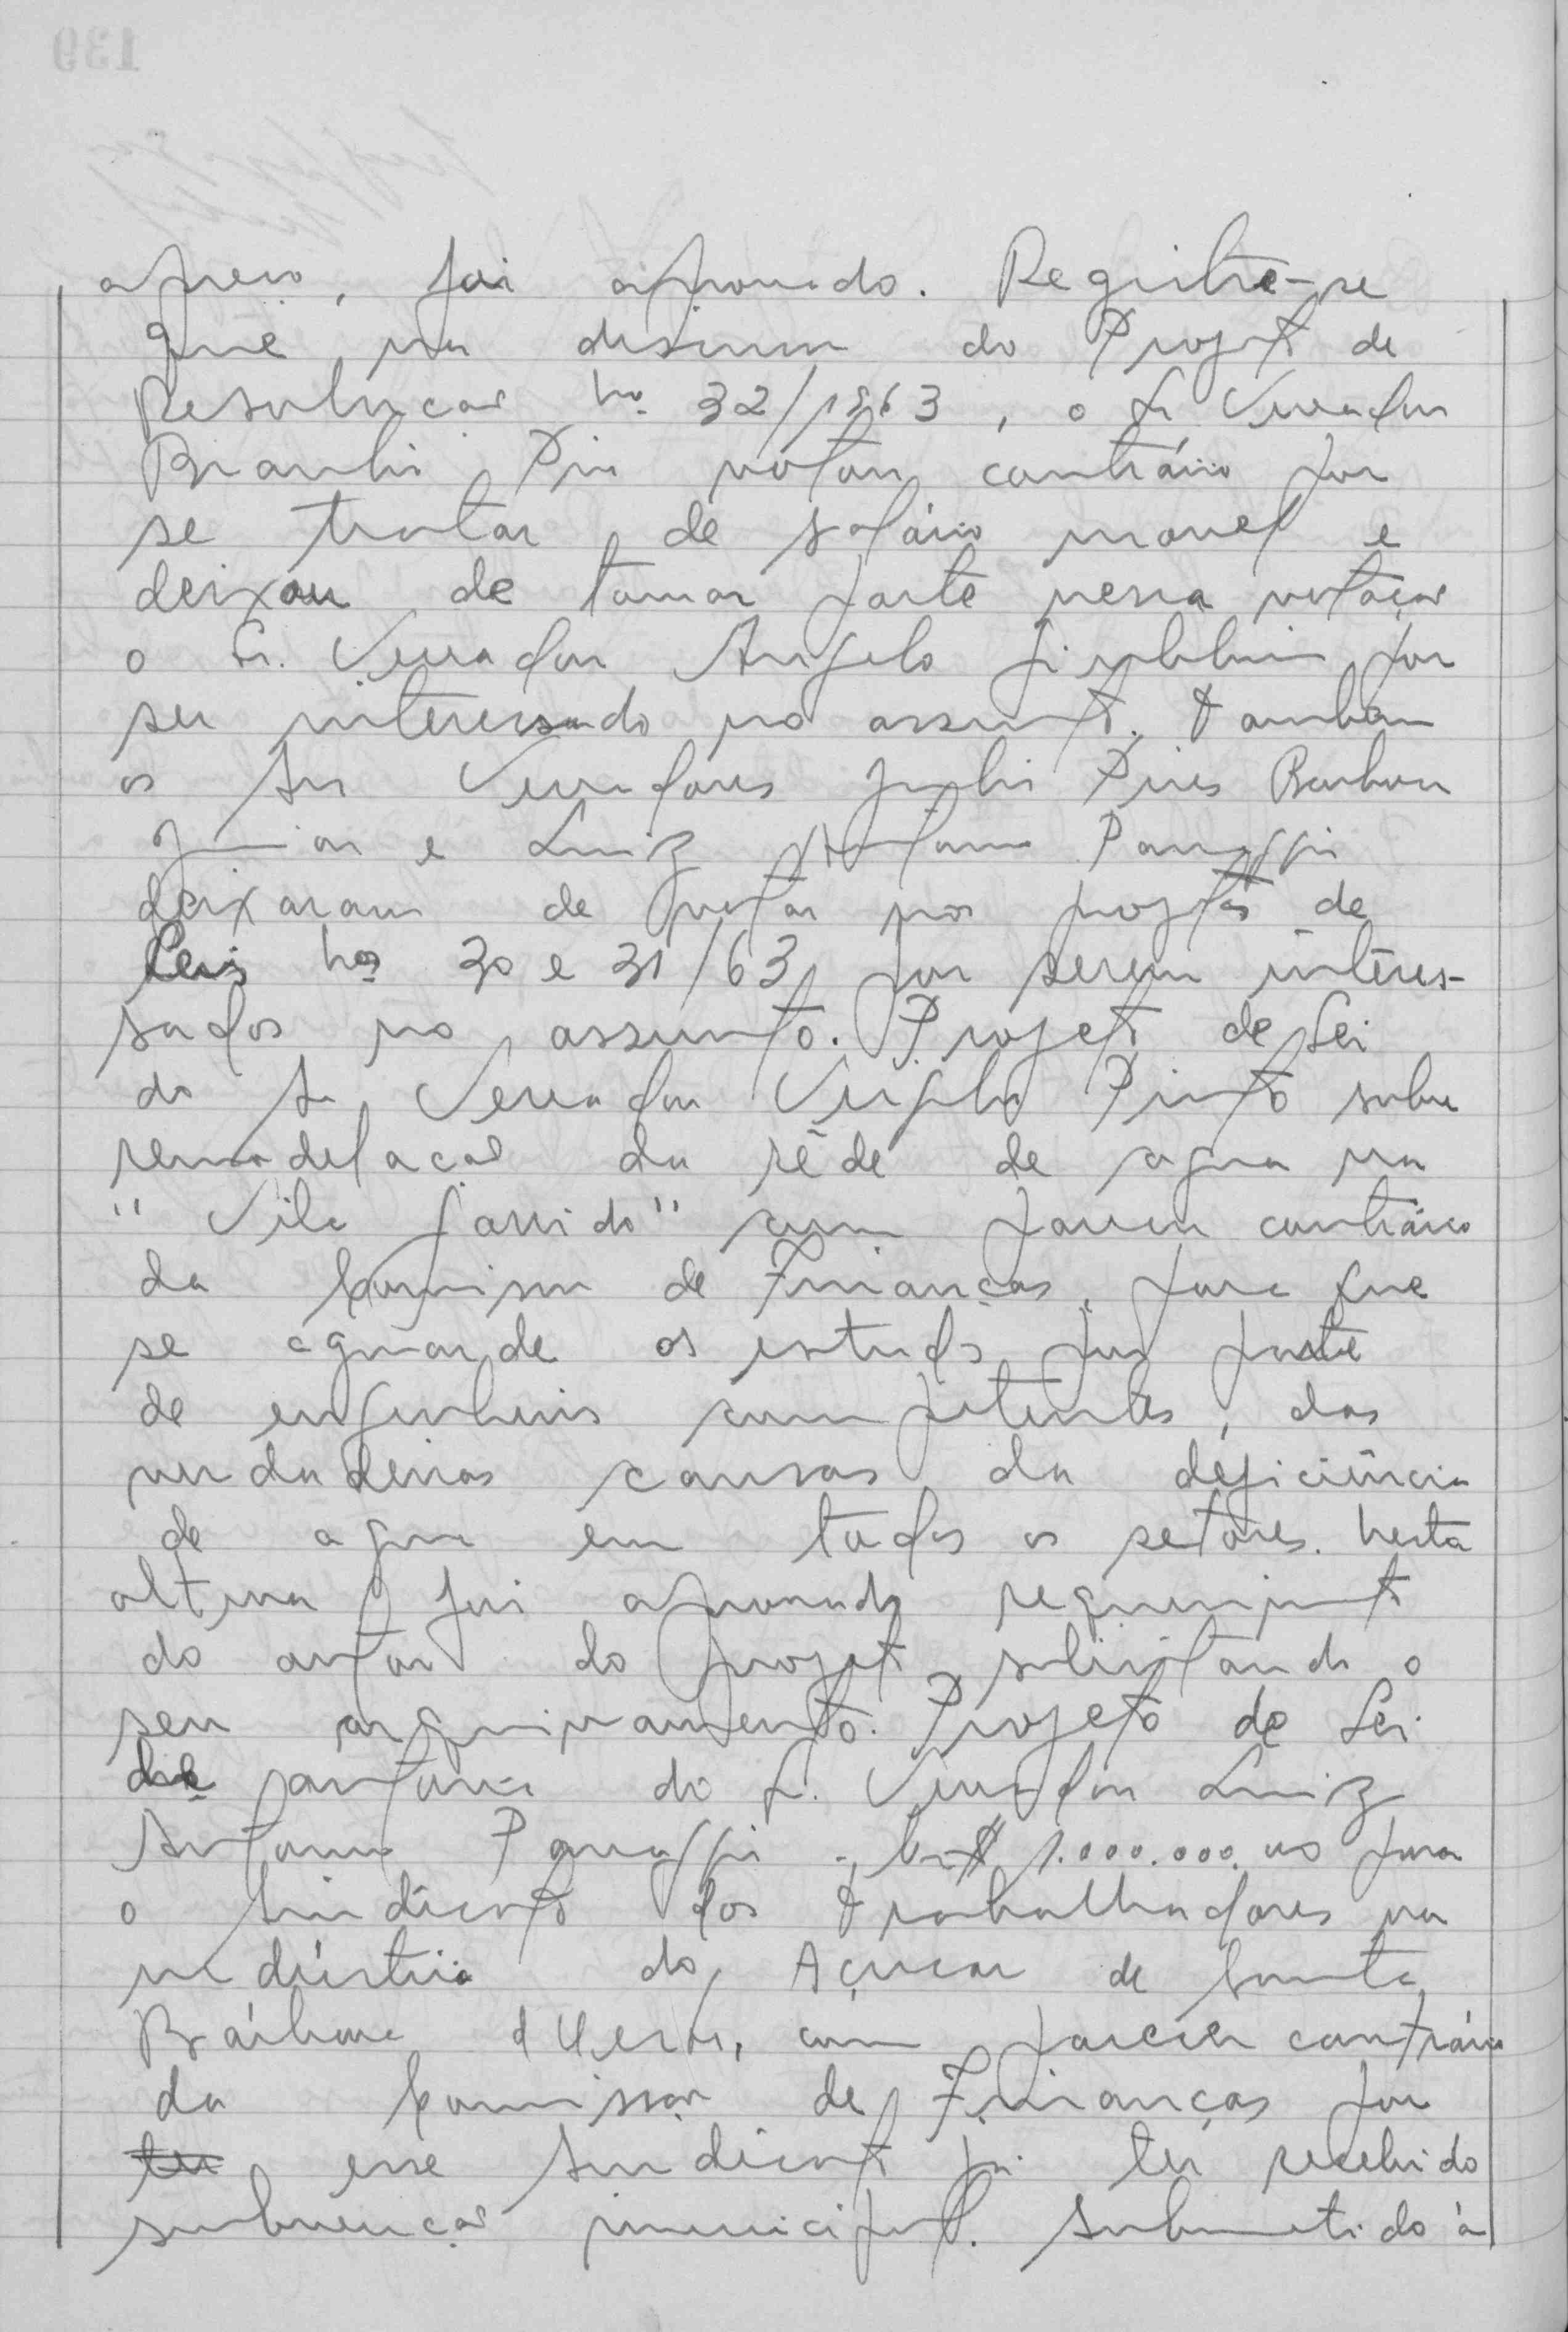 apreço, foi aprovado. Registre-se
que na discussão do Projeto de
Resolução nº 32/1963, o Sr Vereador
Braulio Pio votou contrário por
se tratar de salário movel e
deixou de tomar parte nessa votação
o Sr. Vereador Angelo Giubbina por
ser interessado no assunto. Tambem
os Srs Vereadores Julio Pires Barbosa
Junior e Luiz Antonio Panaggio
deixaram de votar nos projetos de
Leis nºs 30 e 31/63 por serem interes-
sados no assunto. Projeto de Lei
do Sr Vereador Virgilio Pinto sobre
remodelação da rêde de agua na
"Vila Garrido" com parecer contrário
da Comissão de Finanças, para que
se aguarde os estudos por parte
de engenheiros competentes, das
verdadeiras causas da deficiência
de agua em todos os setores. Nesta
altura foi aprovado requerimento
do autor do projeto solicitando o
seu arquivamento. Projeto de Lei
de autoria do Sr. Vereador Luiz
Antonio Panaggio - Cr$ 1.000.000,00 para
o Sindicato dos Trabalhadores na
indústria do Açucar de Santa
Bárbara d'Oeste, com parecer contrário
da Comissão de Finanças por
ter esse Sindicato já ter recebido
subvenção municipal. Submetido à